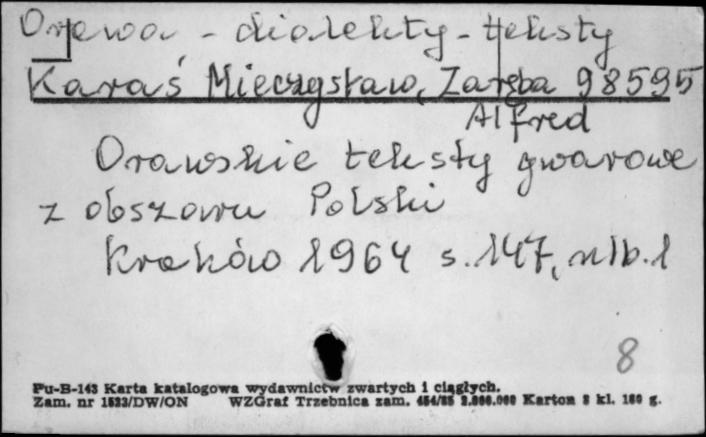 Orawa - dialekty - teksty
Karaś Mieczysław, Zaręba 98595
Alfred
Orawskie teksty gwarowe
z obszaru Polski
Kraków 1964 s. 147, nlb. 1
8
Pu-B-143 Karta katalogowa wydawnictw zwartych i ciągłych.
Zam. nr 1523/DW/ON WZGraf Trzebnica zam. Karton 8 kl. 180 g.